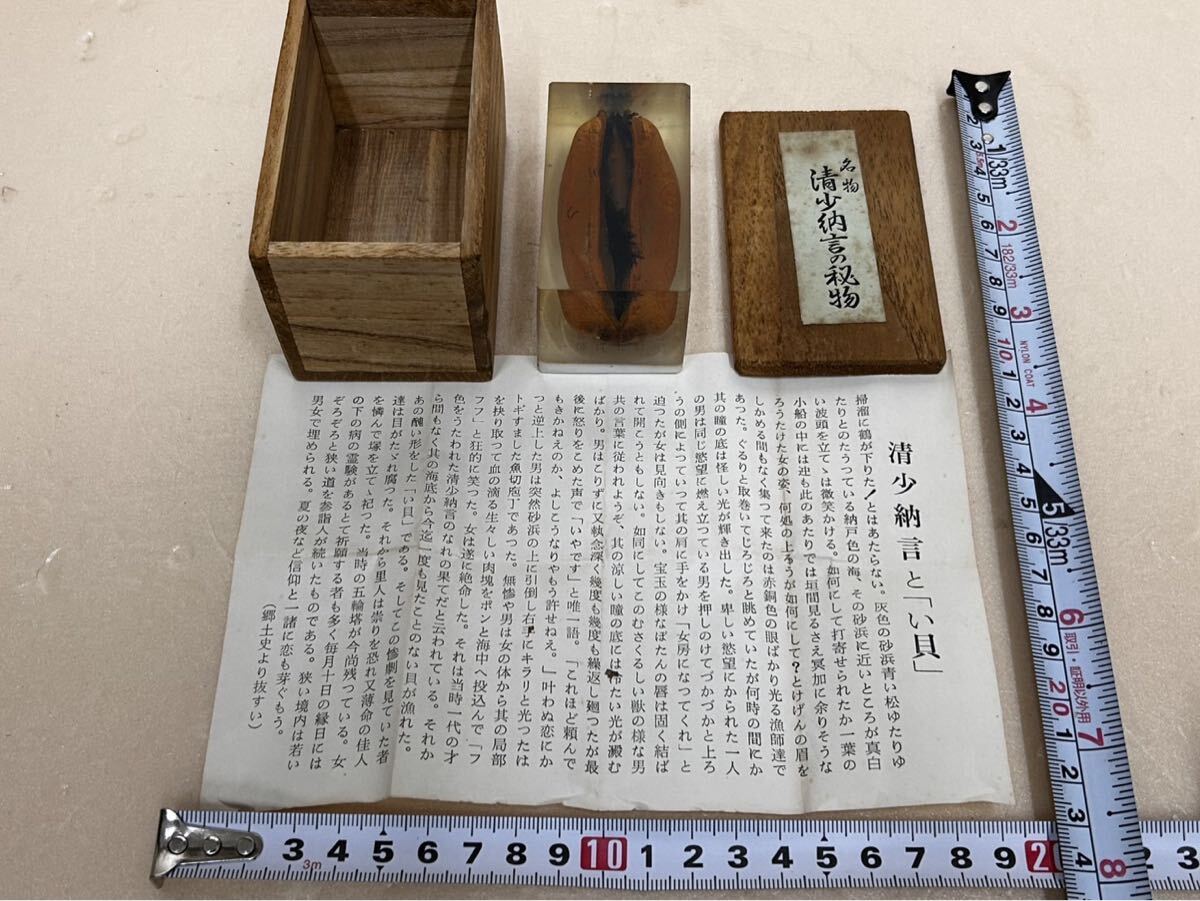 名物
清少納言の秘物
清少納言と「い貝」
掃溜に鶴が下りた！とはあたらない。灰色の砂浜青い松ゆたりゆ
たりとのたうつている納戸色の海、その砂浜に近いところが真白
い波頭を立てゝは微笑かける。如何にして打寄せられたか一葉の
小船の中には迚も此のあたりでは垣間見るさえ冥加に余りそうな
ろうたけた女の姿、何処の上ろうが如何にして？とけげんの眉を
しかめる間もなく集つて来たのは赤銅色の眼ばかり光る漁師達で
あつた。ぐるりと取巻いてじろじろと眺めていたが何時の間にか
其の瞳の底は怪しい光が輝き出した。卑しい慾望にかられた一人
の男は同じ慾望に燃え立つている男を押しのけてづかづかと上ろ
うの側によつていつて其の肩に手をかけ「女房になつてくれ」と
迫つたが女は見向きもしない。宝玉の様なぼたんの唇は固く結ば
れて開こうともしない。如同にしてこのむさくるしい獣の様な男
共の言葉に従われようぞ、其の涼しい瞳の底には冷たい光が澱む
ばかり。男はこりずに又執念深く幾度も幾度も繰返し廻つたが最
後に怒りをこめた声で「いやです」と唯一語。「これほど頼んで
もきかねえのか、よしこうなりやもう許せねえ。」叶わぬ恋にか
つと逆上した男は突然砂浜の上に引倒し右手にキラリと光つたは
トギすました魚切庖丁であつた。無惨や男は女の体から其の局部
を抉り取つて血の滴る生々しい肉塊をポンと海中へ投込んで「フ
フフ」と狂的に笑つた。女は遂に絶命した。それは当時一代の才
色をうたわれた清少納言のなれの果てだと云われている。それか
ら間もなく其の海底から今迄一度も見たことのない貝が漁れた。
あの醜い形をした「い貝」である。そしてこの惨劇を見ていた者
達は目がたゞれ腐つた。それから里人は祟りを恐れ又薄命の佳人
を憐んで塚を立てゝ祀つた。当時の五輪塔が今尚残つている。女
の下の病の霊験があるとて祈願する者も多く毎月十日の縁日には
ぞろぞろと狭い道を参詣人が続いたものである。狭い境内は若い
男女で埋められる。夏の夜など信仰と一諸に恋も芽ぐもう。
（郷土史より抜すい）
3m 3 4 5 6 7 8 9 10 1 2 3 4 5 6 7 8 9 20 2 3
1 33m 5.5m 4 5 6 2 182/33m 8 9 3 10 1 2 NYLON COAT 4 3 4 5 5.33m 6 7 8 6 取引・証明以外用 9 20 1 7 2 3 4 8